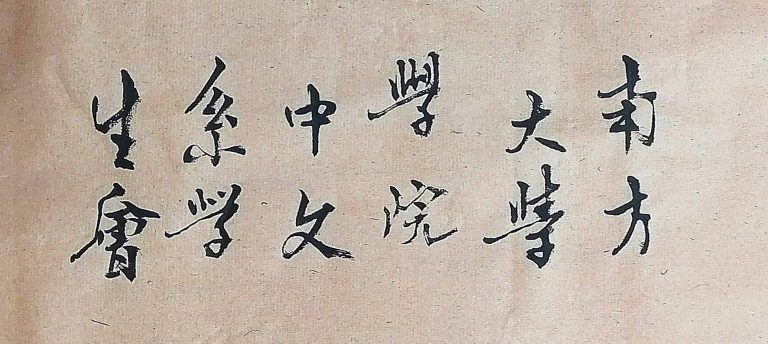 南方
大學
學院
中文
系学
生會